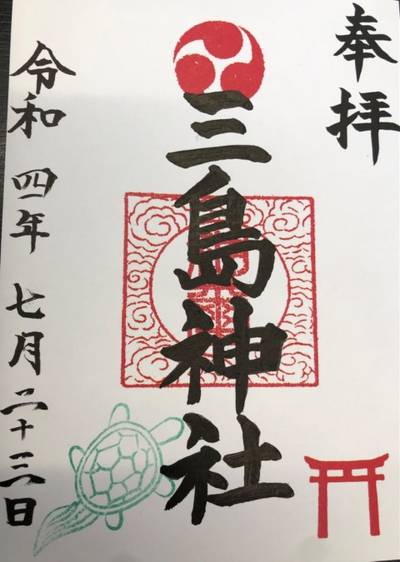 奉拝
三島神社
令和四年七月二十三日